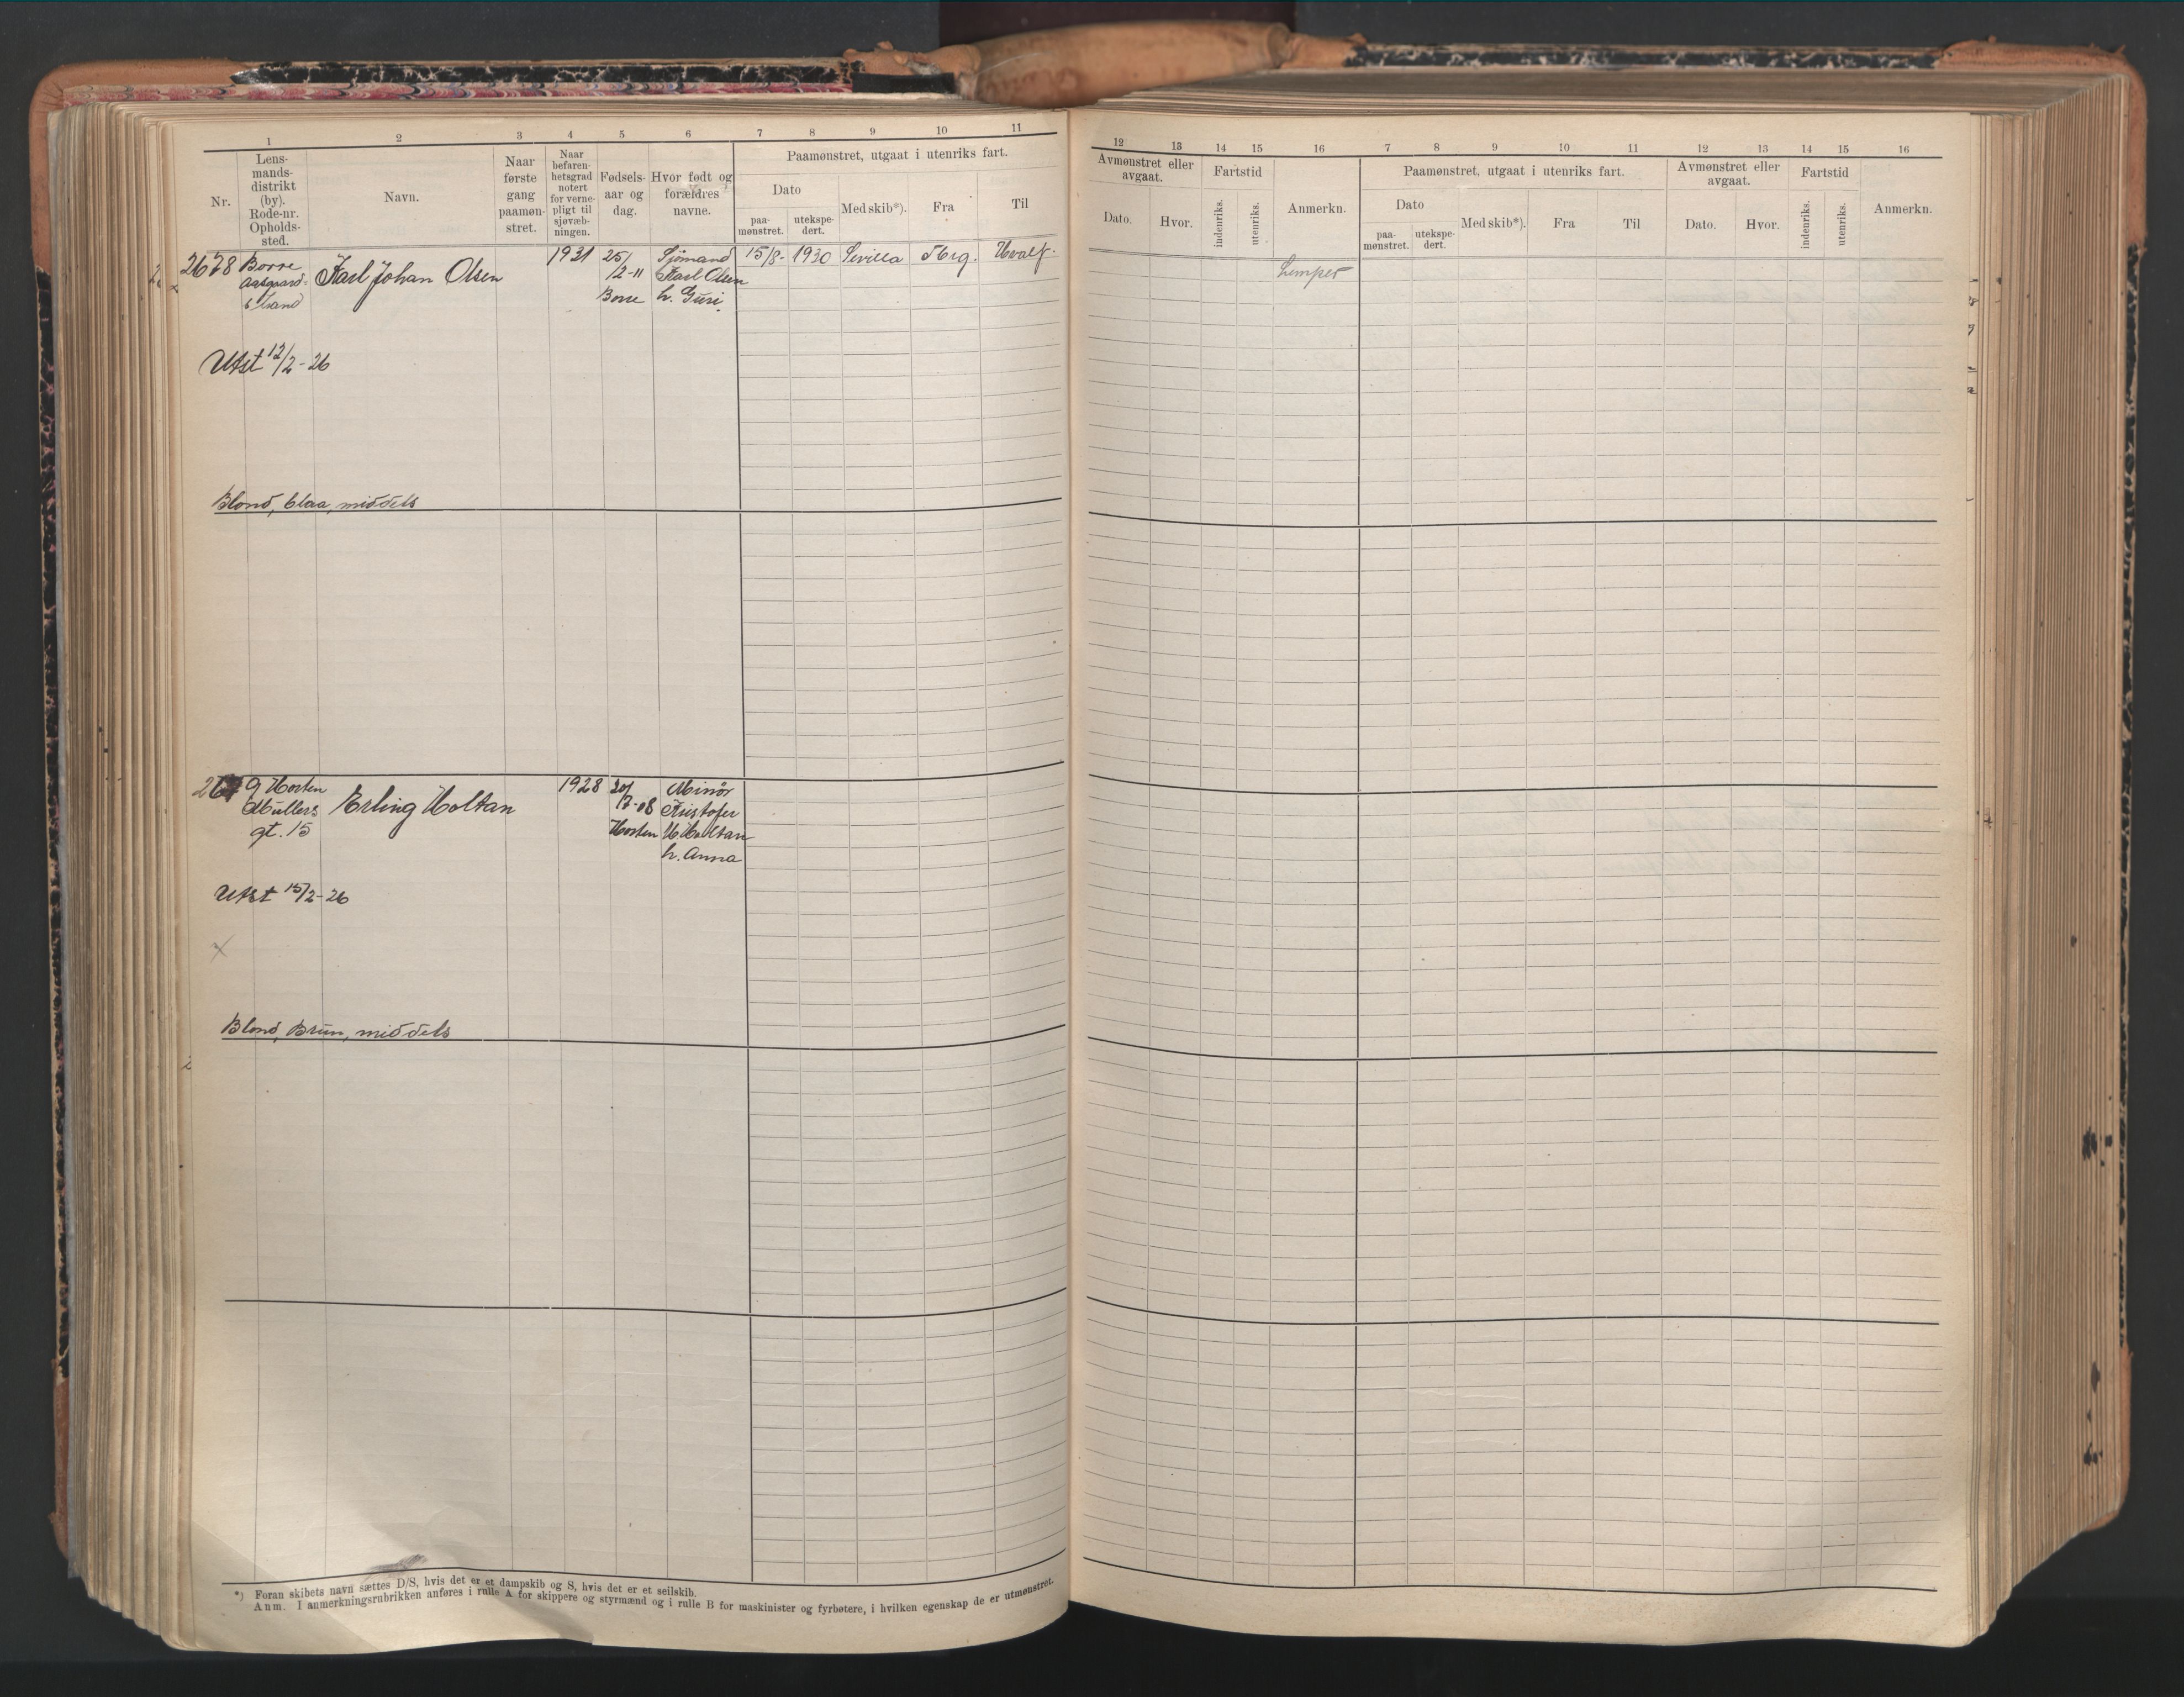 1 2 3 4 5 6 7 8 9 10 11
Nr.
Lens-
mands-
distrikt
(by).
Rode-nr.
Opholds-
sted.
Navn.
Naar
første
gang
paamøn-
stret.
Naar
befaren-
hetsgrad
notert
for verne-
pligt til
sjøvæb-
ningen.
Fødsels-
aar og
dag.
Hvor født og
forældres
navne.
Paamønstret, utgaat i utenriks fart.
Dato
paa-
mønstret.
utekspe-
dert.
Med skib*).
Fra
Til
2678 Borre Karl Johan Olsen 1931 25/ Sjømand 15/8- 1930 Sevilla Tbrg. Hvalf.
Aasgaard- 12-11 Karl Olsen
strand Borre h. Guri.
Utst 12/2-26
Blond, blaa, middels
Horten Erling Holtan 1928 Minör
Müllers Kristofer
gt. 15 Horten Holtan
h. Anna
Utst 15/2-26
x
Blond, Brun, middels
*) Foran skibets navn sættes D/S, hvis det er et dampskib og S, hvis det er et seilskib.
Anm. I anmerkningsrubrikken anføres i rulle A for skippere og styrmænd og i rulle B for maskinister og fyrbøtere, i hvilken egenskap de er utmønstret.
12 13 14 15 16 7 8 9 10 11 12 13 14 15 16
Avmønstret eller
avgaat.
Dato.
Hvor.
Fartstid
indenriks.
utenriks.
Anmerkn.
Paamønstret, utgaat i utenriks fart.
Dato
paa-
mønstret.
utekspe-
dert.
Med skib*).
Fra
Til
Avmønstret eller
avgaat.
Dato.
Hvor.
Fartstid
indenriks.
utenriks.
Anmerkn.
Lemper